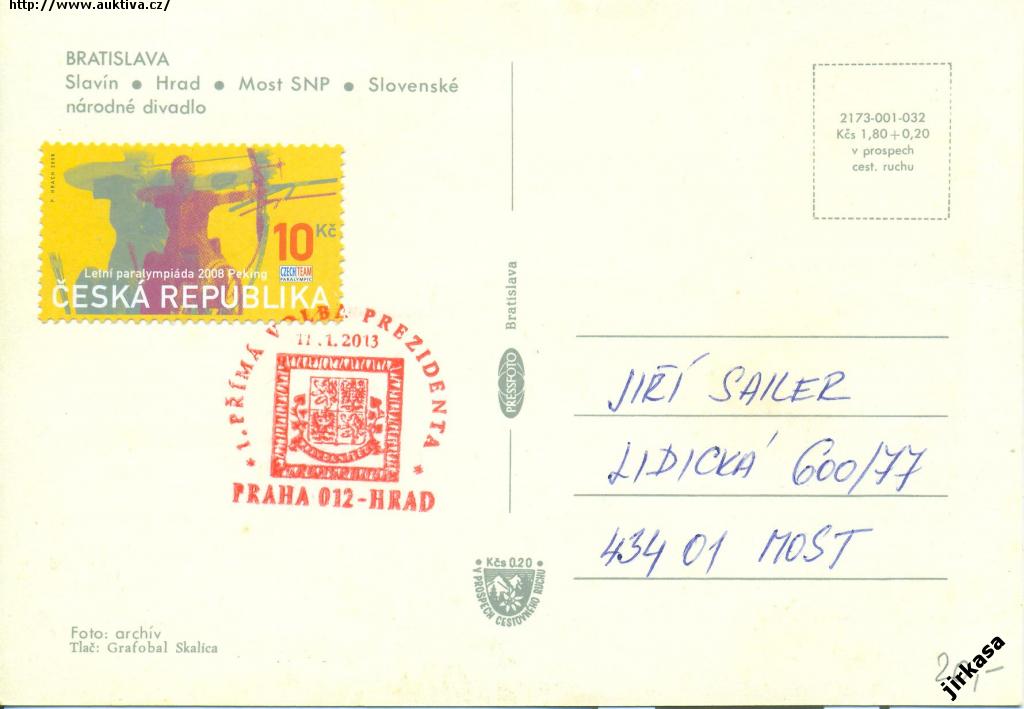 http://www.auktiva.cz/
BRATISLAVA
Slavín • Hrad • Most SNP • Slovenské
národné divadlo
2173-001-032
Kčs 1,80+0,20
v prospech
cest. ruchu
P. HRACH 2008
10 Kč
CZECH TEAM
PARALYMPIC
Letní paralympiáda 2008 Peking
ČESKÁ REPUBLIKA
* 1. PŘÍMÁ VOLBA PREZIDENTA *
11.1.2013
PRAHA 012-HRAD
Bratislava
PRESSFOTO
JIŘÍ SAILER
LIDICKÁ 600/77
434 01 MOST
• Kčs 0.20 •
V PROSPECH CESTOVNÉHO RUCHU
Foto: archív
Tlač: Grafobal Skalica
jirkasa